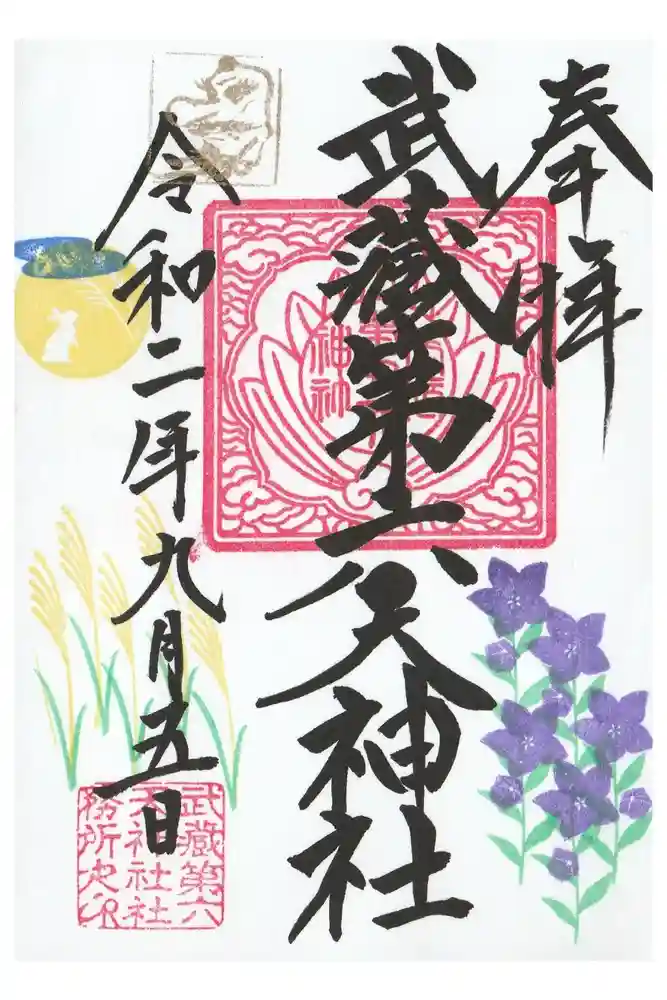 奉拝
武蔵第六天神社
令和二年九月五日
武蔵第六
天神社社
務所之印